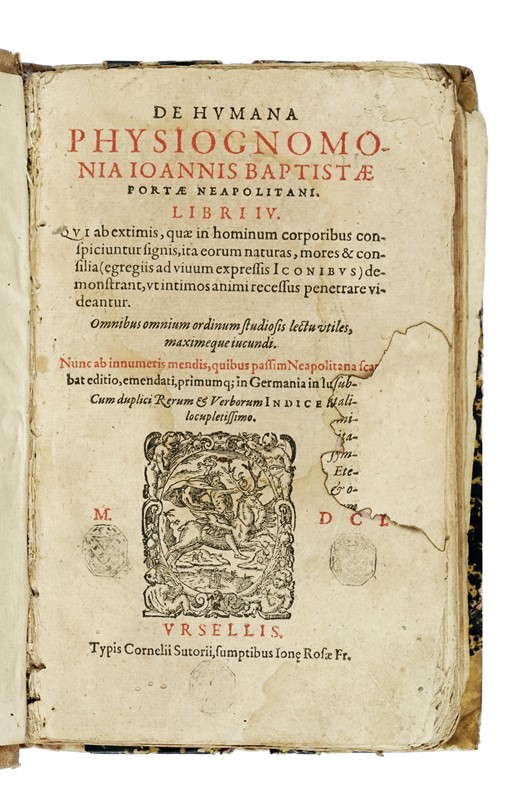 DE HVMANA
PHYSIOGNOMO-
NIA IOANNIS BAPTISTÆ
PORTÆ NEAPOLITANI.
LIBRI IV.
QVI ab extimis, quæ in hominum corporibus con-
spiciuntur signis, ita eorum naturas, mores & con-
silia (egregiis ad viuum expressis ICONIBVS) de-
monstrant, vt intimos animi recessus penetrare vi-
deantur.
Omnibus omnium ordinum studiosis lectu vtiles,
maximeque iucundi.
Nunc ab innumeris mendis, quibus passim Neapolitana
bat editio, emendati, primumq; in Germania in
sub-
Cum duplici Rerum & Verborum INDICE
ali-
locupletissimo.
mi-
ita-
Ete-
& o-
M. DCI.
VRSELLIS.
Typis Cornelii Sutorii, sumptibus Ionę Rosæ Fr.